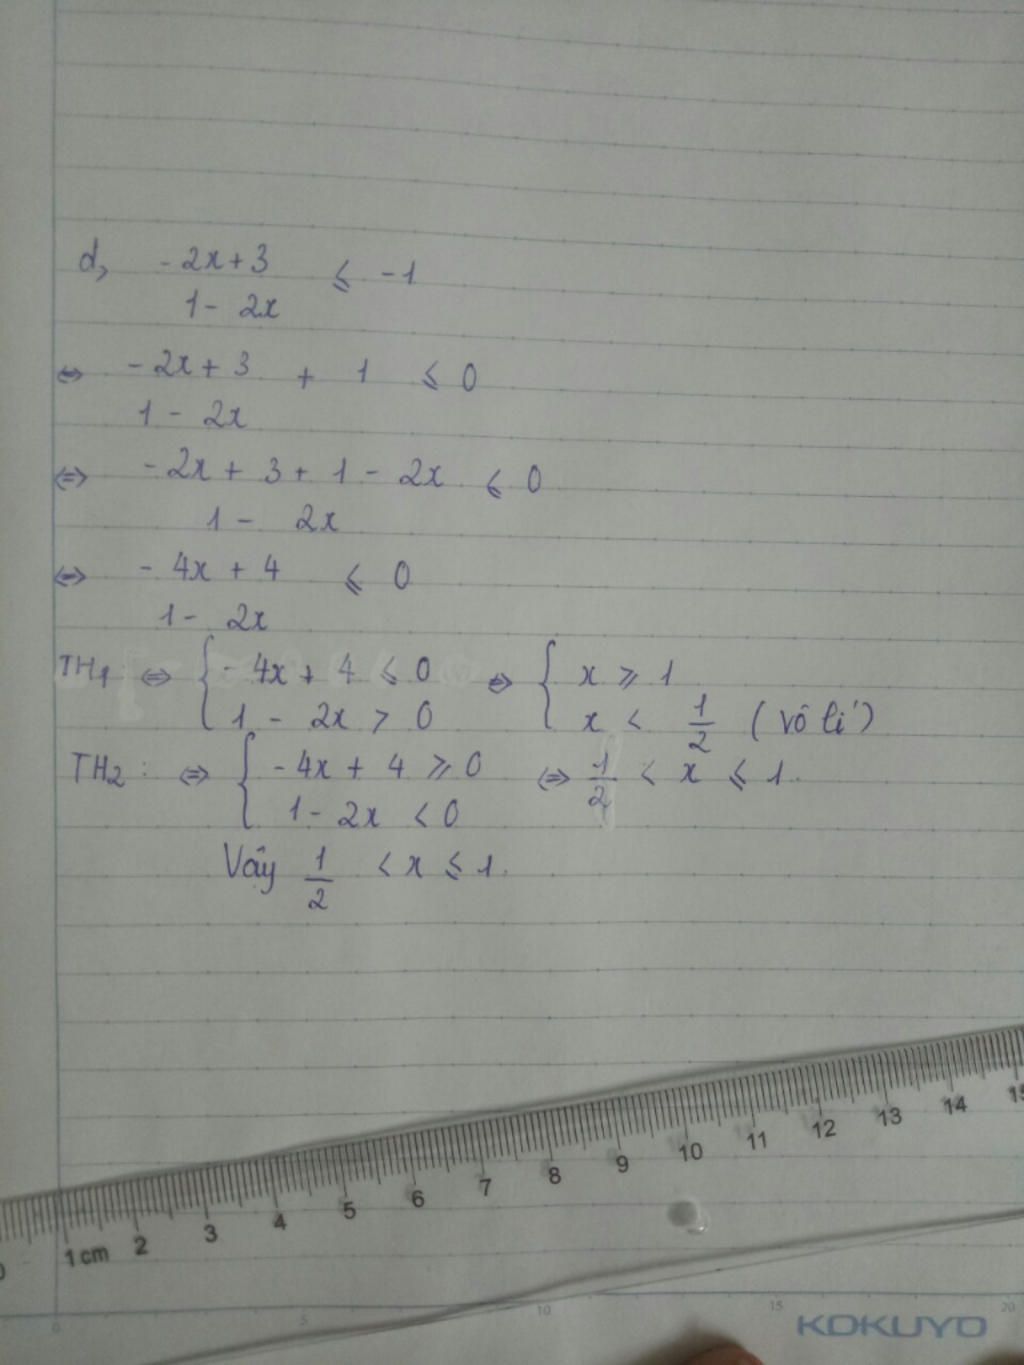 d, -2x+3 ⩽ -1
1 - 2x
⇔ -2x + 3 + 1 ⩽ 0
1 - 2x
⇔ -2x + 3 + 1 - 2x ⩽ 0
1 - 2x
⇔ -4x + 4 ⩽ 0
1 - 2x
TH1 ⇔ { -4x + 4 ⩽ 0 ⇔ { x ⩾ 1
1 - 2x > 0 x < 1/2 (vô lí)
TH2 : ⇔ { -4x + 4 ⩾ 0 ⇔ 1/2 < x ⩽ 1.
1 - 2x < 0
Vây 1/2 < x ⩽ 1.
0 1 cm 2 3 4 5 6 7 8 9 10 11 12 13 14 15
0 5 10 15 20
KOKUYO